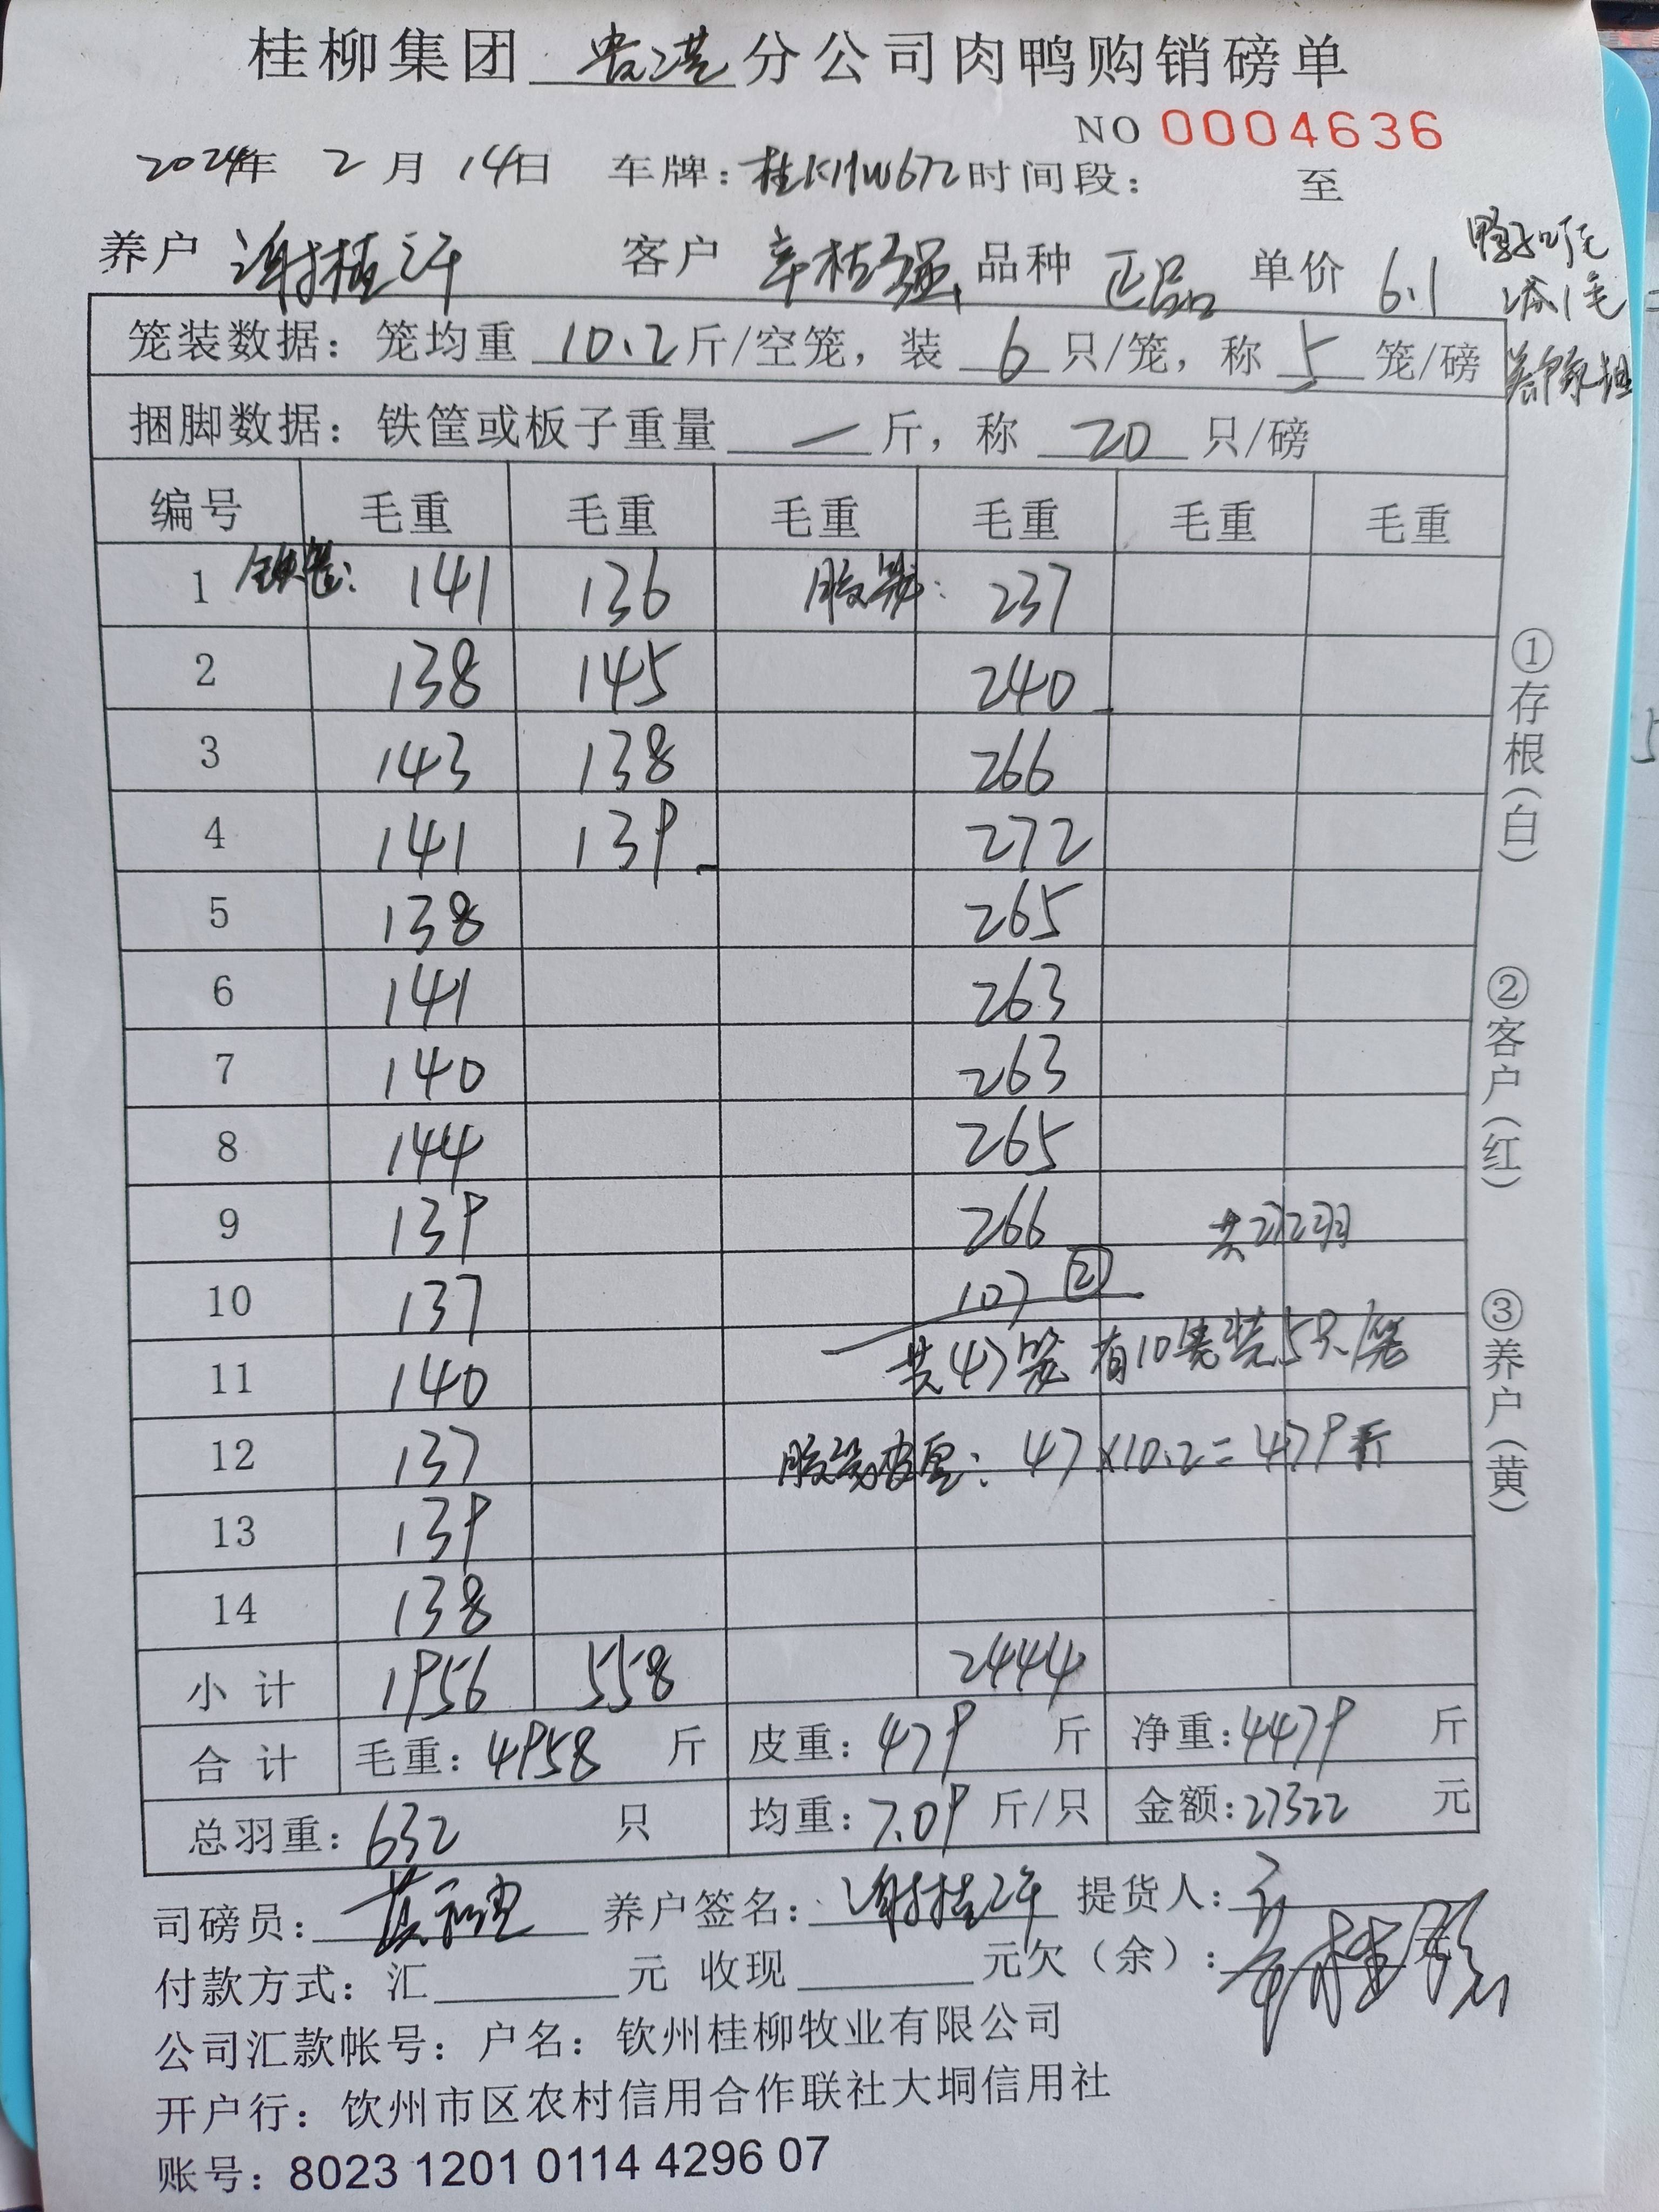 桂柳集团 贵港 分公司肉鸭购销磅单
NO 0004636
2024年 2 月 14日 车牌：桂KHW672 时间段： 至
养户 客户 品种 正品 单价 6.1
笼装数据：笼均重 10.2 斤/空笼，装 6 只/笼，称 5 笼/磅
捆脚数据：铁筐或板子重量 一 斤，称 20 只/磅
编号 毛重 毛重 毛重 毛重 毛重 毛重
1 铁笼： 141 136 胶笼： 237
2 138 145 240
3 143 138 266
4 141 139 272
5 138 265
6 141 263
7 140 263
8 144 265
9 139 266 共272羽
10 137 107 ②
11 140 共47笼 有10笼装5只/笼
12 137 胶笼皮重：47×10.2=479斤
13 139
14 138
小计 1956 558 2444
合计 毛重：4958 斤 皮重：479 斤 净重：4479 斤
总羽重：632 只 均重：7.09 斤/只 金额：27322 元
司磅员： 养户签名： 提货人：
付款方式：汇 元 收现 元欠（余）：
公司汇款帐号：户名：钦州桂柳牧业有限公司
开户行：钦州市区农村信用合作联社大垌信用社
账号：8023 1201 0114 4296 07
①存根（白）
②客户（红）
③养户（黄）